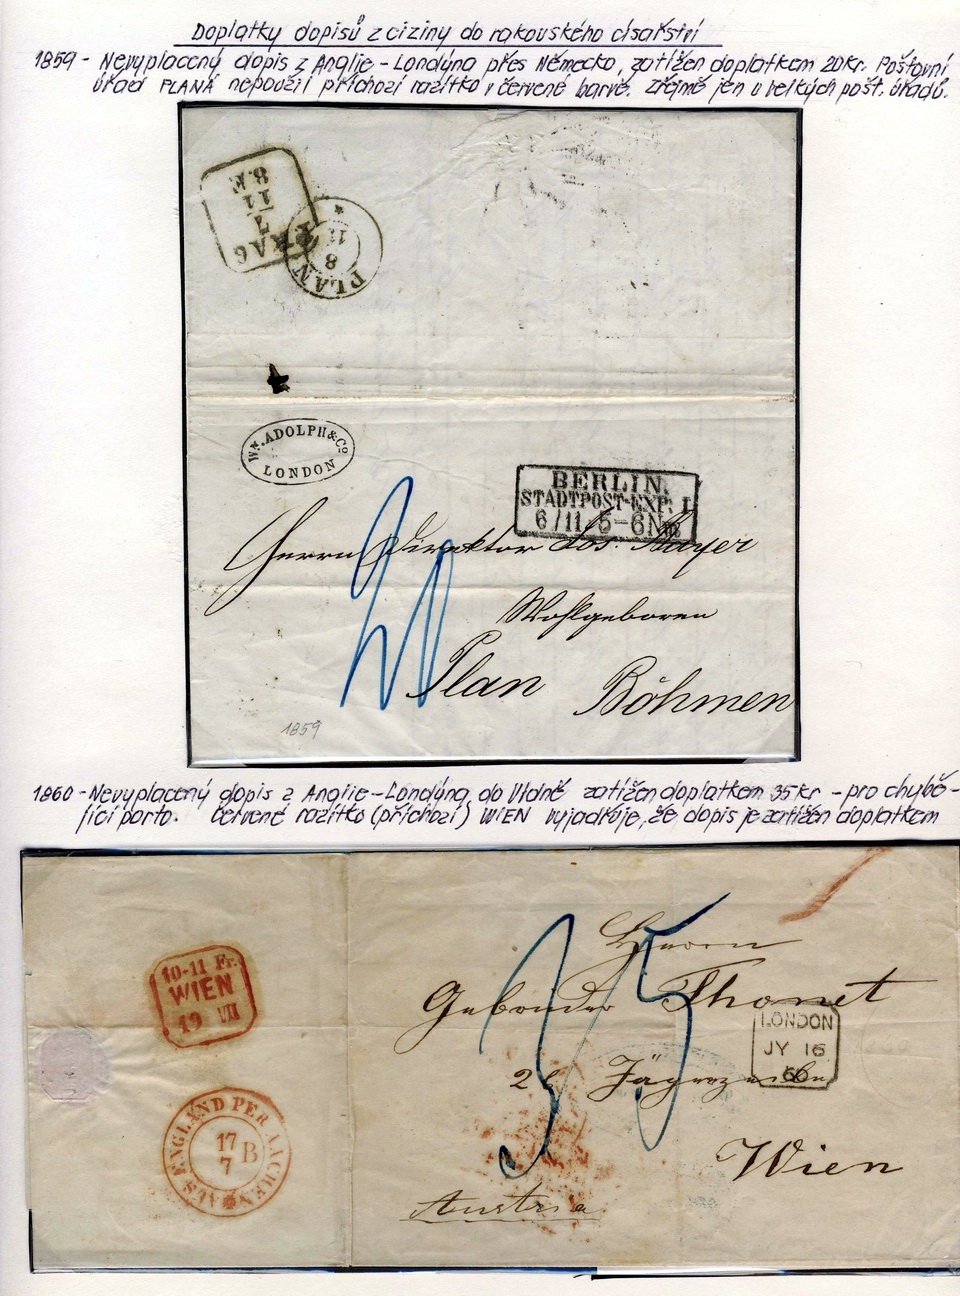 Doplatky dopisů z ciziny do rakouského císařství
1859 - Nevyplacený dopis z Anglie - Londýna přes Německo, zatížen doplatkem 20 kr. Poštovní
úřad PLANÁ nepoužil příchozí razítko v červené barvě. Zřejmě jen u velkých pošt. úřadů.
PRAG
7
11
8.F.
PLAN
8
11
WM. ADOLPH & Co
LONDON
BERLIN.
STADTPOST-EXP. I
6/11 5-6 Nm
Herrn Direktor Jos. Mayer
Wohlgeboren
20
Plan Böhmen
1859
1860 - Nevyplacený dopis z Anglie - Londýna do Vídně zatížen doplatkem 35 kr - pro chybě-
jící porto. Červené razítko (příchozí) WIEN vyjadřuje, že dopis je zatížen doplatkem
10-11 Fr.
WIEN
19 VII
AUS ENGLAND PER AACHEN
17
7
B
35
Herrn
Gebrüder Thonet
LONDON
JY 16
60
Jägerzeile
Wien
Austria